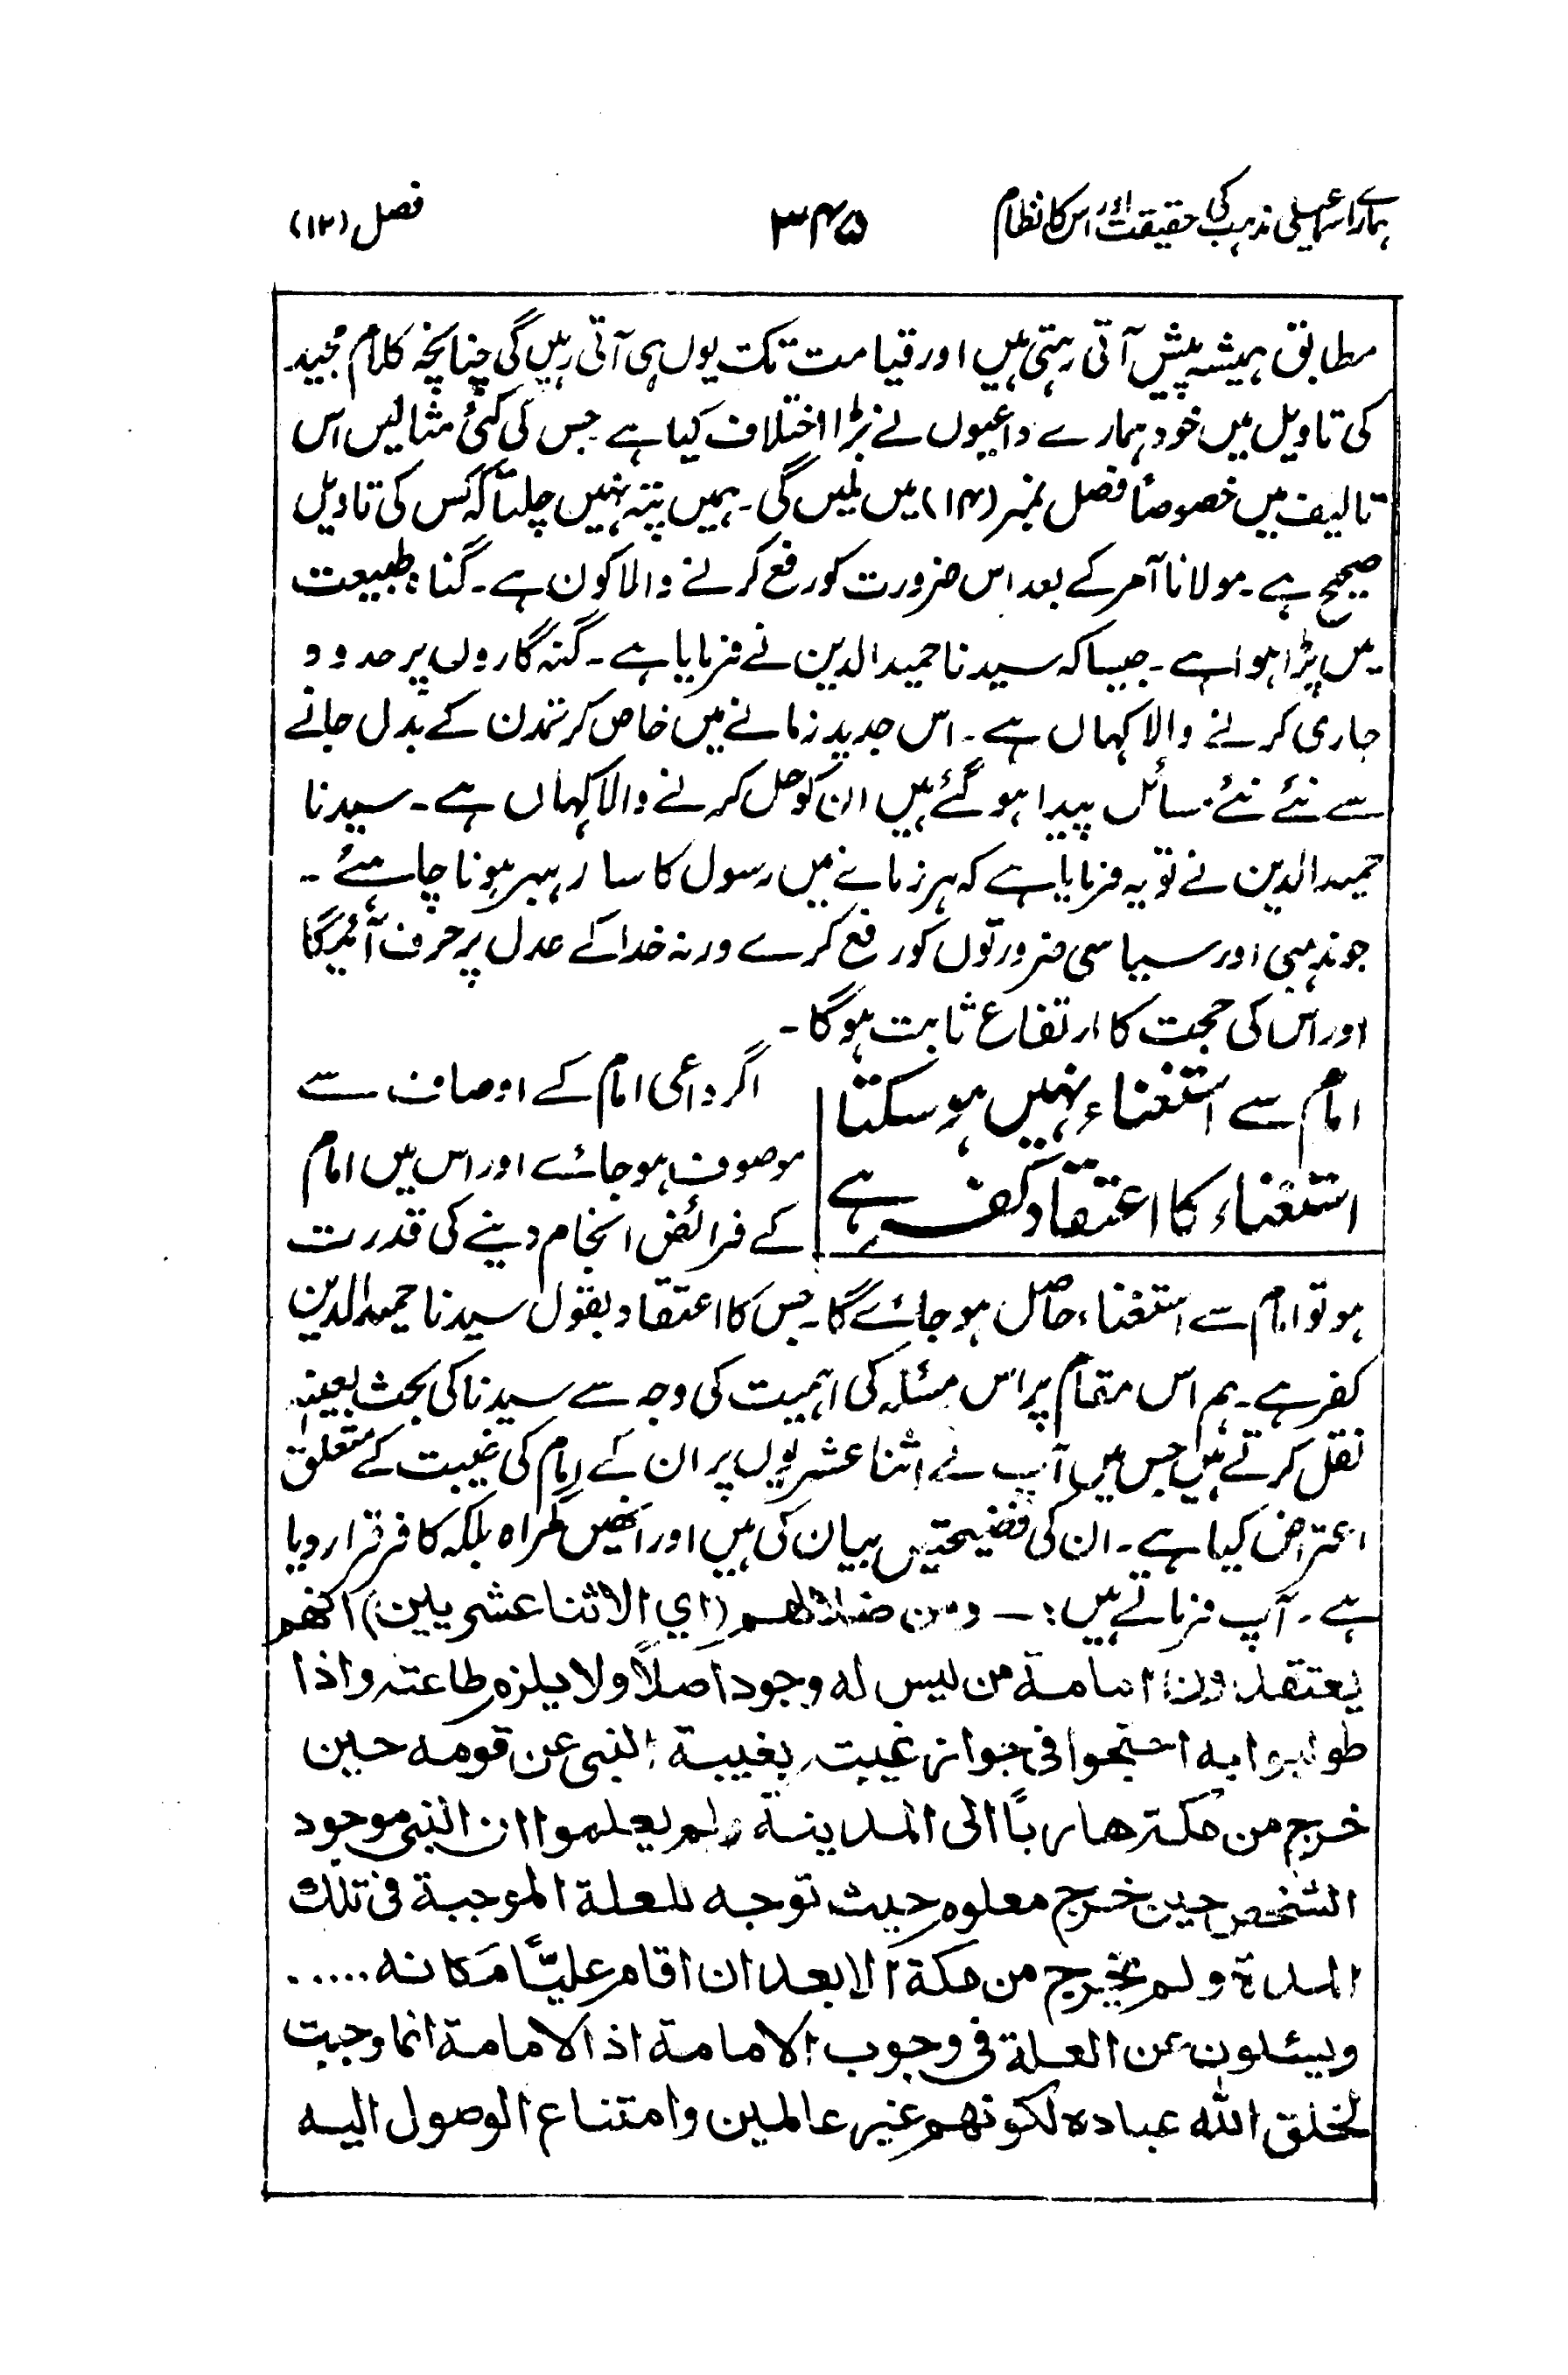 ہمارے اسماعیلی مذہب کی حقیقت اور اس کا نظام
۳۴۵
فصل (۱۲)
مطابق ہمیشہ پیش آتی رہتی ہیں اور قیامت تک یوں ہی آتی رہیں گی چنانچہ کلام مجید
کی تاویل میں خود ہمارے داعیوں نے بڑا اختلاف کیا ہے جس کی کئی مثالیں اس
تالیف میں خصوصاً فصل نمبر (۱۴) میں ملیں گی۔ ہمیں پتہ نہیں چلتا کہ کس کی تاویل
صحیح ہے۔ مولانا آمر کے بعد اس ضرورت کو رفع کرنے والا کون ہے۔ گناہ طبیعت
میں پڑا ہوا ہے۔ جیسا کہ سیدنا حمید الدین نے فرمایا ہے۔ گنہ گاروں پر حدود
جاری کرنے والا کہاں ہے۔ اس جدید زمانے میں خاص کر تمدن کے بدل جانے
سے نئے نئے مسائل پیدا ہو گئے ہیں ان کو حل کرنے والا کہاں ہے۔ سیدنا
حمید الدین نے تو یہ فرمایا ہے کہ ہر زمانے میں رسول کا سا رہبر ہونا چاہئے۔
جو مذہبی اور سیاسی ضرورتوں کو رفع کرے ورنہ خدا کے عدل پر حرف آئیگا
اور اس کی حجت کا ارتفاع ثابت ہوگا۔
امام سے استغناء نہیں ہو سکتا
استغناء کا اعتقاد کفر ہے
اگر داعی امام کے اوصاف سے
موصوف ہو جائے اور اس میں امام
کے فرائض انجام دینے کی قدرت
ہو تو امام سے استغناء حاصل ہو جائے گا۔ جس کا اعتقاد بقول سیدنا حمید الدین
کفر ہے۔ ہم اس مقام پر اس مسئلہ کی اہمیت کی وجہ سے سیدنا کی بحث بعینہٖ
نقل کرتے ہیں جس میں آپ نے اثنا عشریوں پر ان کے امام کی غیبت کے متعلق
اعتراض کیا ہے۔ ان کی فضیحتیں بیان کی ہیں اور انھیں گمراہ بلکہ کافر قرار دیا
ہے۔ آپ فرماتے ہیں :۔ ومن ضلالهم (اي الاثنا عشريين) انهم
يعتقدون امامة من ليس له وجود اصلاً ولا يلزم طاعته واذا
طولبوا به احتجوا فى جواز غيبته بغيبة النبى عن قومه حين
خرج من مكة هارباً الى المدينة ولم يعلموا ان النبى موجود
الشخص حين خرج معلوم حيث توجه للعلة الموجبة فى تلك
المدة ولم يخرج من مكة الا بعد ان اقام عليّاً مكانه .....
ويسئلون عن العلة فى وجوب الامامة اذ الامامة انما وجبت
لخلق الله عباده لكونهم غير عالمين وامتناع الوصول اليه